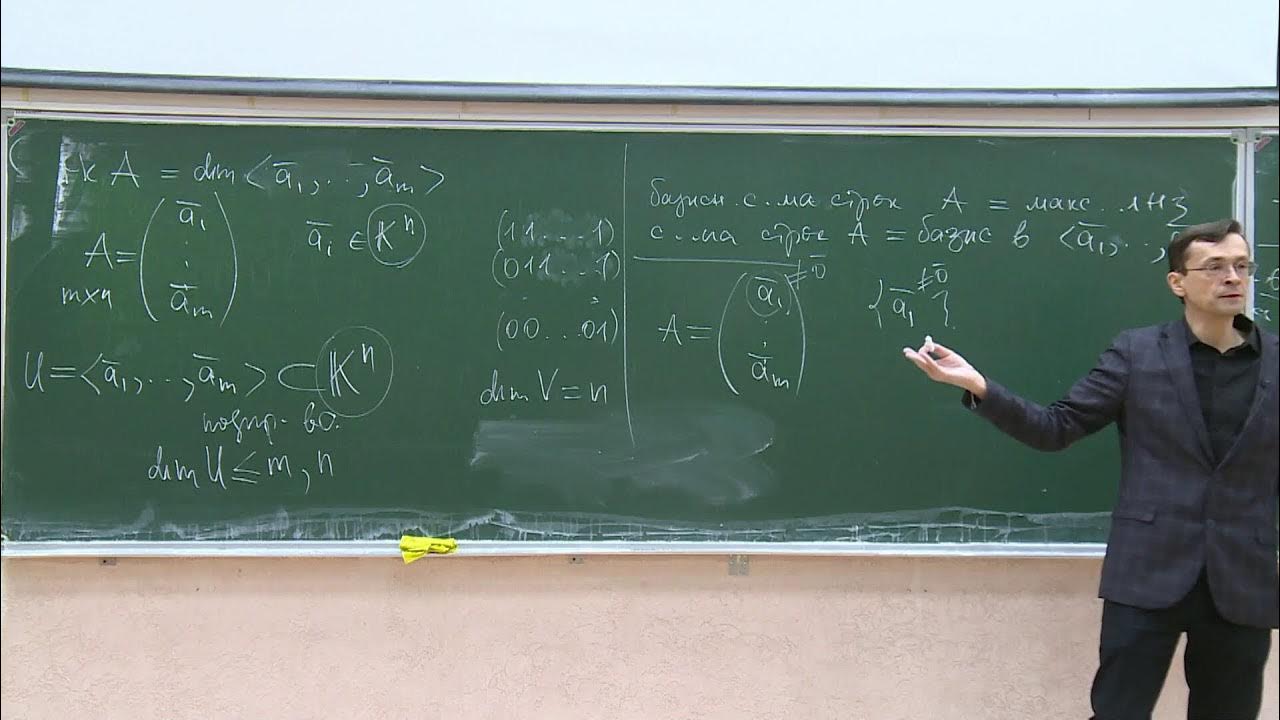 rk A = dim <a̅₁, .., a̅ₘ>
A = (a̅₁ : a̅ₘ)
m×n
a̅ᵢ ∈ 𝕂ⁿ
U = <a̅₁, .., a̅ₘ> ⊂ 𝕂ⁿ
подпр-во.
dim U ≤ m, n
(11...1)
(011...1)
. . .
(00...01)
dim V = n
базисн. с-ма строк A = макс. ЛНЗ
с-ма строк A = базис в <a̅₁, ..,
A = (a̅₁ : a̅ₘ) ≠ 0̅
{a̅₁ ≠ 0̅}